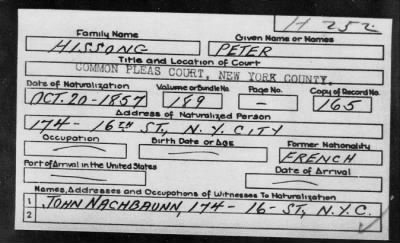 H 252
Family Name Given Name or Names
HISSONG PETER
Title and Location of Court
COMMON PLEAS COURT, NEW YORK COUNTY.
Date of Naturalization Volume or Bundle No. Page No. Copy of Record No.
OCT. 20-1857 189 – 165
Address of Naturalized Person
174 – 16TH ST, N.Y. CITY
Occupation Birth Date or Age Former Nationality
FRENCH
Port of Arrival in the United States Date of Arrival
Names, Addresses and Occupations of Witnesses To Naturalization
1 JOHN NACHBAUNN, 174 – 16 – ST, N.Y.C.
2